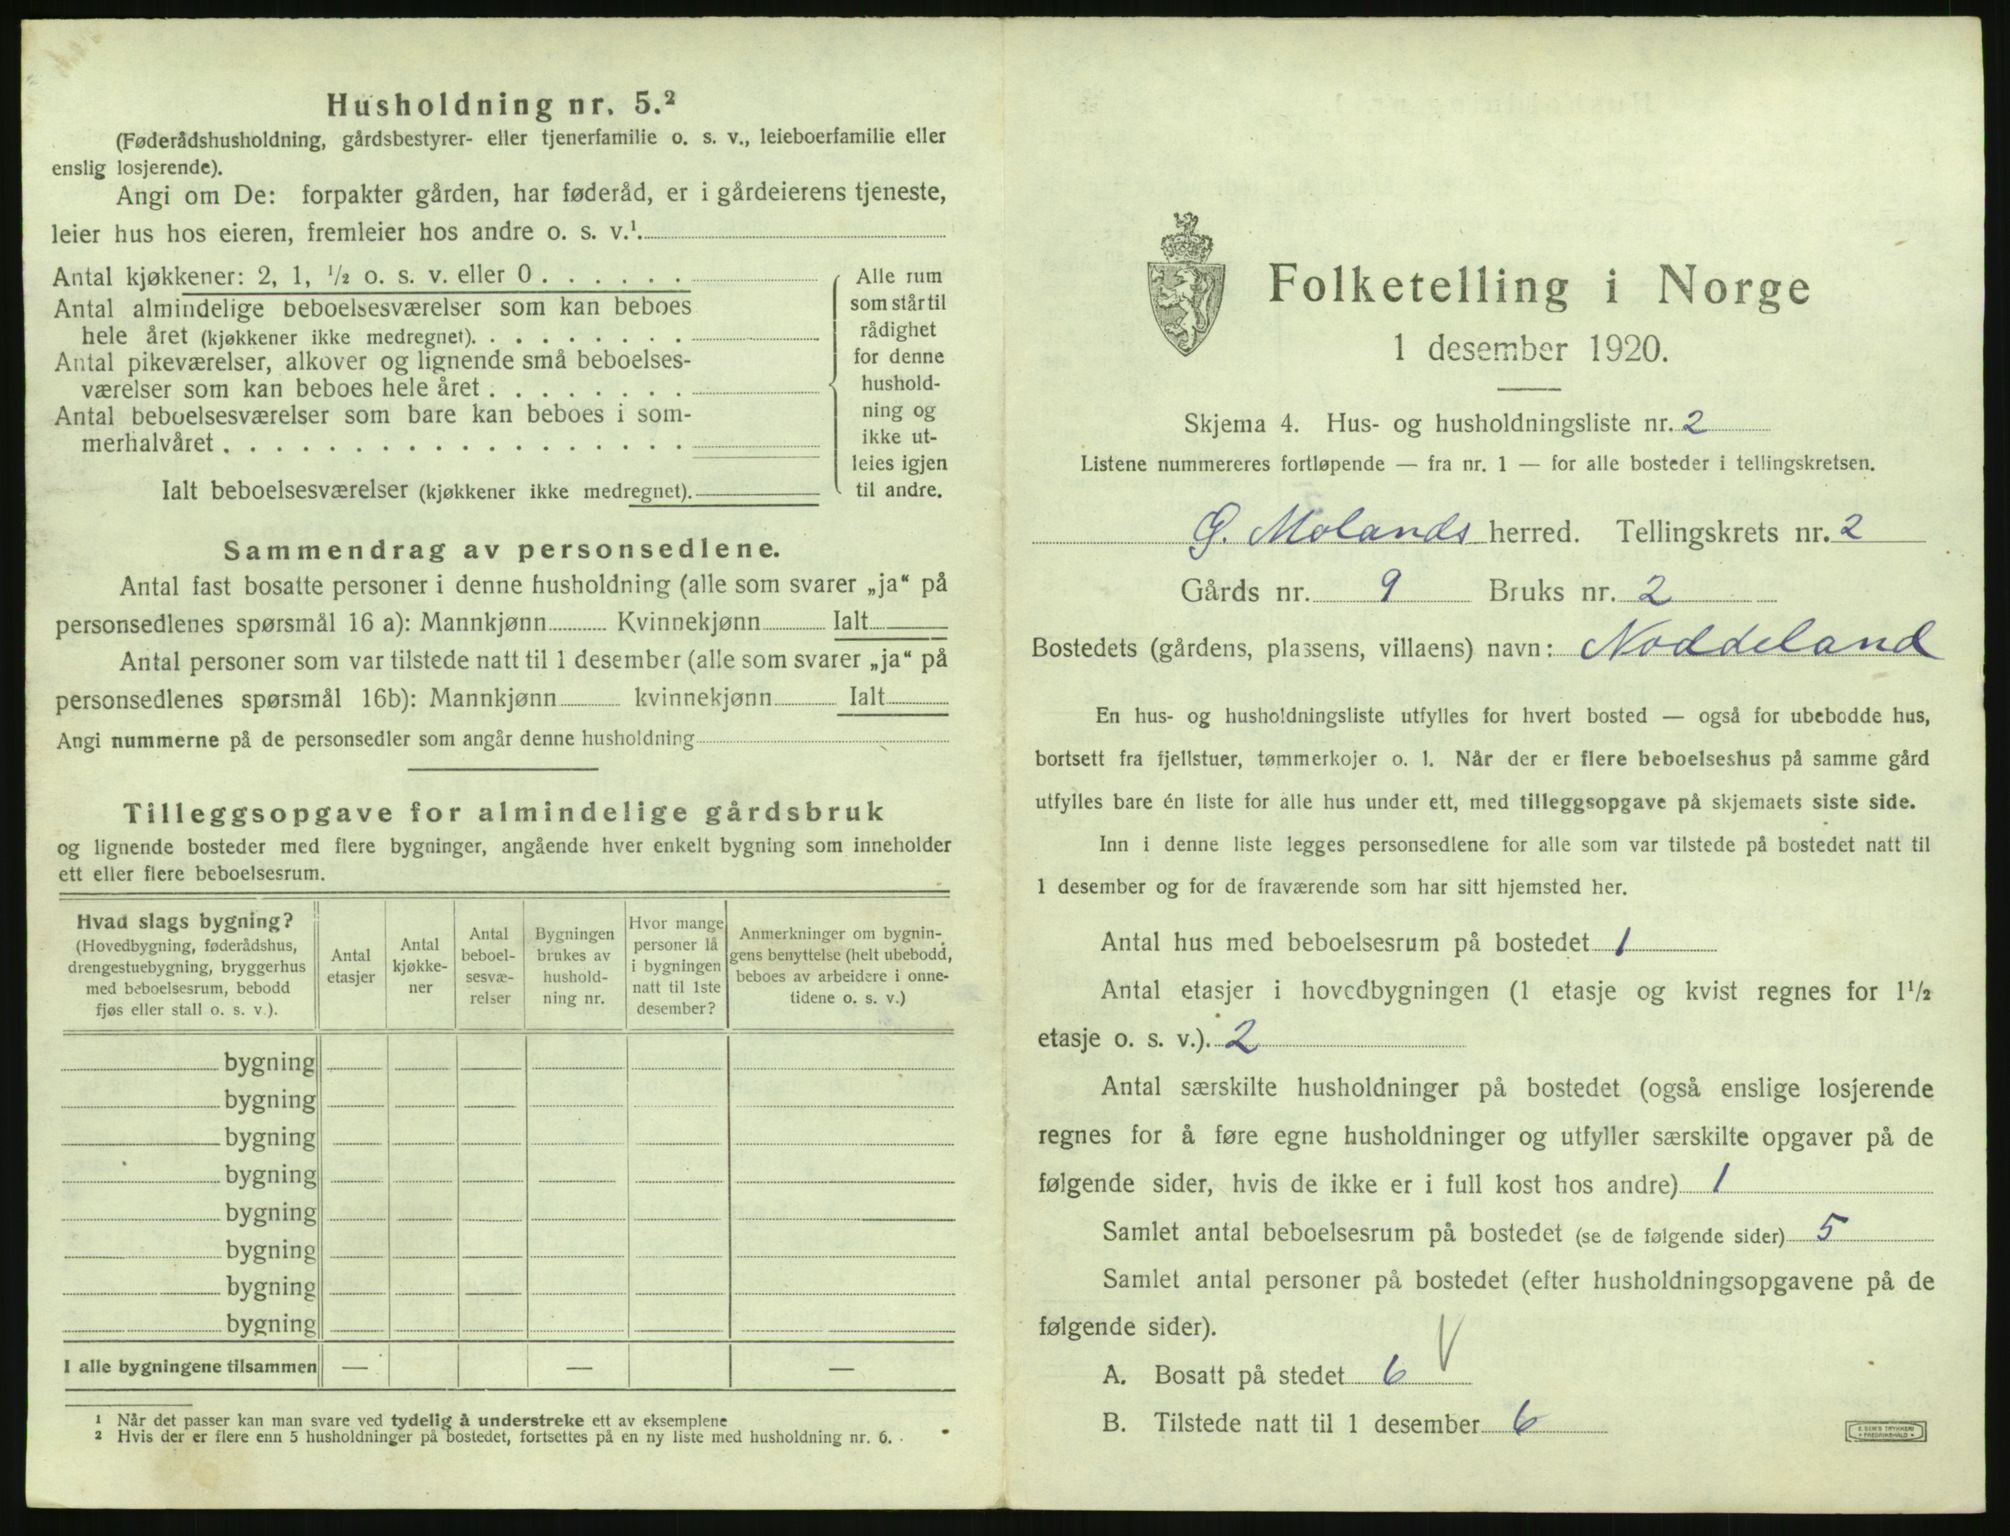 Husholdning nr. 5.²
(Føderådshusholdning, gårdsbestyrer- eller tjenerfamilie o. s. v., leieboerfamilie eller
enslig losjerende).
Angi om De: forpakter gården, har føderåd, er i gårdeierens tjeneste,
leier hus hos eieren, fremleier hos andre o. s. v.¹.
Antal kjøkkener: 2, 1, ½ o. s. v. eller 0 . . . . . .
Antal almindelige beboelsesværelser som kan beboes
hele året (kjøkkener ikke medregnet). . . . . . . . .
Antal pikeværelser, alkover og lignende små beboelses-
værelser som kan beboes hele året . . . . . . . .
Antal beboelsesværelser som bare kan beboes i som-
merhalvåret . . . . . . . . . . . . . . . . . .
Ialt beboelsesværelser (kjøkkener ikke medregnet).
Alle rum
som står til
rådighet
for denne
hushold-
ning og
ikke ut-
leies igjen
til andre.
Sammendrag av personsedlene.
Antal fast bosatte personer i denne husholdning (alle som svarer „ja“ på
personsedlenes spørsmål 16 a): Mannkjønn Kvinnekjønn Ialt
Antal personer som var tilstede natt til 1 desember (alle som svarer „ja“ på
personsedlenes spørsmål 16b): Mannkjønn kvinnekjønn Ialt
Angi nummerne på de personsedler som angår denne husholdning
Tilleggsopgave for almindelige gårdsbruk
og lignende bosteder med flere bygninger, angående hver enkelt bygning som inneholder
ett eller flere beboelsesrum.
Hvad slags bygning?
(Hovedbygning, føderådshus,
drengestuebygning, bryggerhus
med beboelsesrum, bebodd
fjøs eller stall o. s. v.).
Antal
etasjer
Antal
kjøkke-
ner
Antal
beboel-
sesvæ-
relser
Bygningen
brukes av
hushold-
ning nr.
Hvor mange
personer lå
i bygningen
natt til 1ste
desember?
Anmerkninger om bygnin-
gens benyttelse (helt ubebodd,
beboes av arbeidere i onne-
tidene o. s. v.)
bygning
bygning
bygning
bygning
bygning
bygning
bygning
bygning
I alle bygningene tilsammen — — —
¹ Når det passer kan man svare ved tydelig å understreke ett av eksemplene
² Hvis der er flere enn 5 husholdninger på bostedet, fortsettes på en ny liste med husholdning nr. 6.
Folketelling i Norge
1 desember 1920.
Skjema 4. Hus- og husholdningsliste nr. 2
Listene nummereres fortløpende — fra nr. 1 — for alle bosteder i tellingskretsen.
G. Molands herred. Tellingskrets nr. 2
Gårds nr. 9 Bruks nr. 2
Bostedets (gårdens, plassens, villaens) navn: Noddeland
En hus- og husholdningsliste utfylles for hvert bosted — også for ubebodde hus,
bortsett fra fjellstuer, tømmerkojer o. l. Når der er flere beboelseshus på samme gård
utfylles bare én liste for alle hus under ett, med tilleggsopgave på skjemaets siste side.
Inn i denne liste legges personsedlene for alle som var tilstede på bostedet natt til
1 desember og for de fraværende som har sitt hjemsted her.
Antal hus med beboelsesrum på bostedet 1
Antal etasjer i hovedbygningen (1 etasje og kvist regnes for 1½
etasje o. s. v.). 2
Antal særskilte husholdninger på bostedet (også enslige losjerende
regnes for å føre egne husholdninger og utfyller særskilte opgaver på de
følgende sider, hvis de ikke er i full kost hos andre) 1
Samlet antal beboelsesrum på bostedet (se de følgende sider) 5
Samlet antal personer på bostedet (efter husholdningsopgavene på de
følgende sider).
A. Bosatt på stedet 6
B. Tilstede natt til 1 desember 6